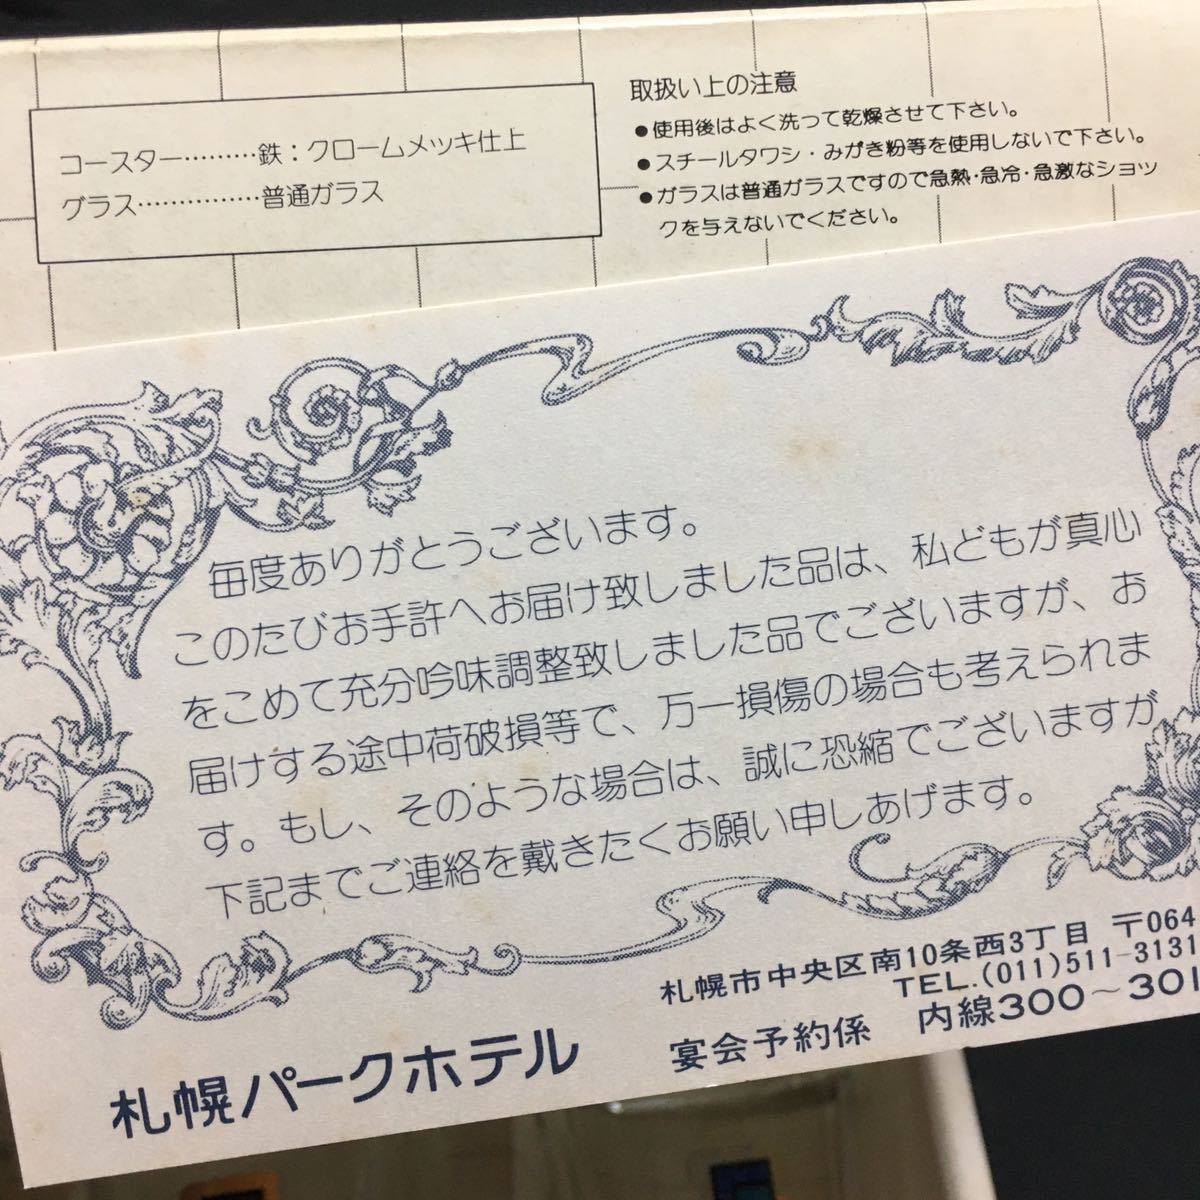 コースター………鉄：クロームメッキ仕上
グラス……………普通ガラス
取扱い上の注意
●使用後はよく洗って乾燥させて下さい。
●スチールタワシ・みがき粉等を使用しないで下さい。
●ガラスは普通ガラスですので急熱・急冷・急激なショッ
クを与えないでください。
毎度ありがとうございます。
このたびお手許へお届け致しました品は、私どもが真心
をこめて充分吟味調整致しました品でございますが、お
届けする途中荷破損等で、万一損傷の場合も考えられま
す。もし、そのような場合は、誠に恐縮でございますが
下記までご連絡を戴きたくお願い申しあげます。
札幌市中央区南10条西3丁目 〒064
TEL.(011)511-3131
札幌パークホテル 宴会予約係 内線300～301